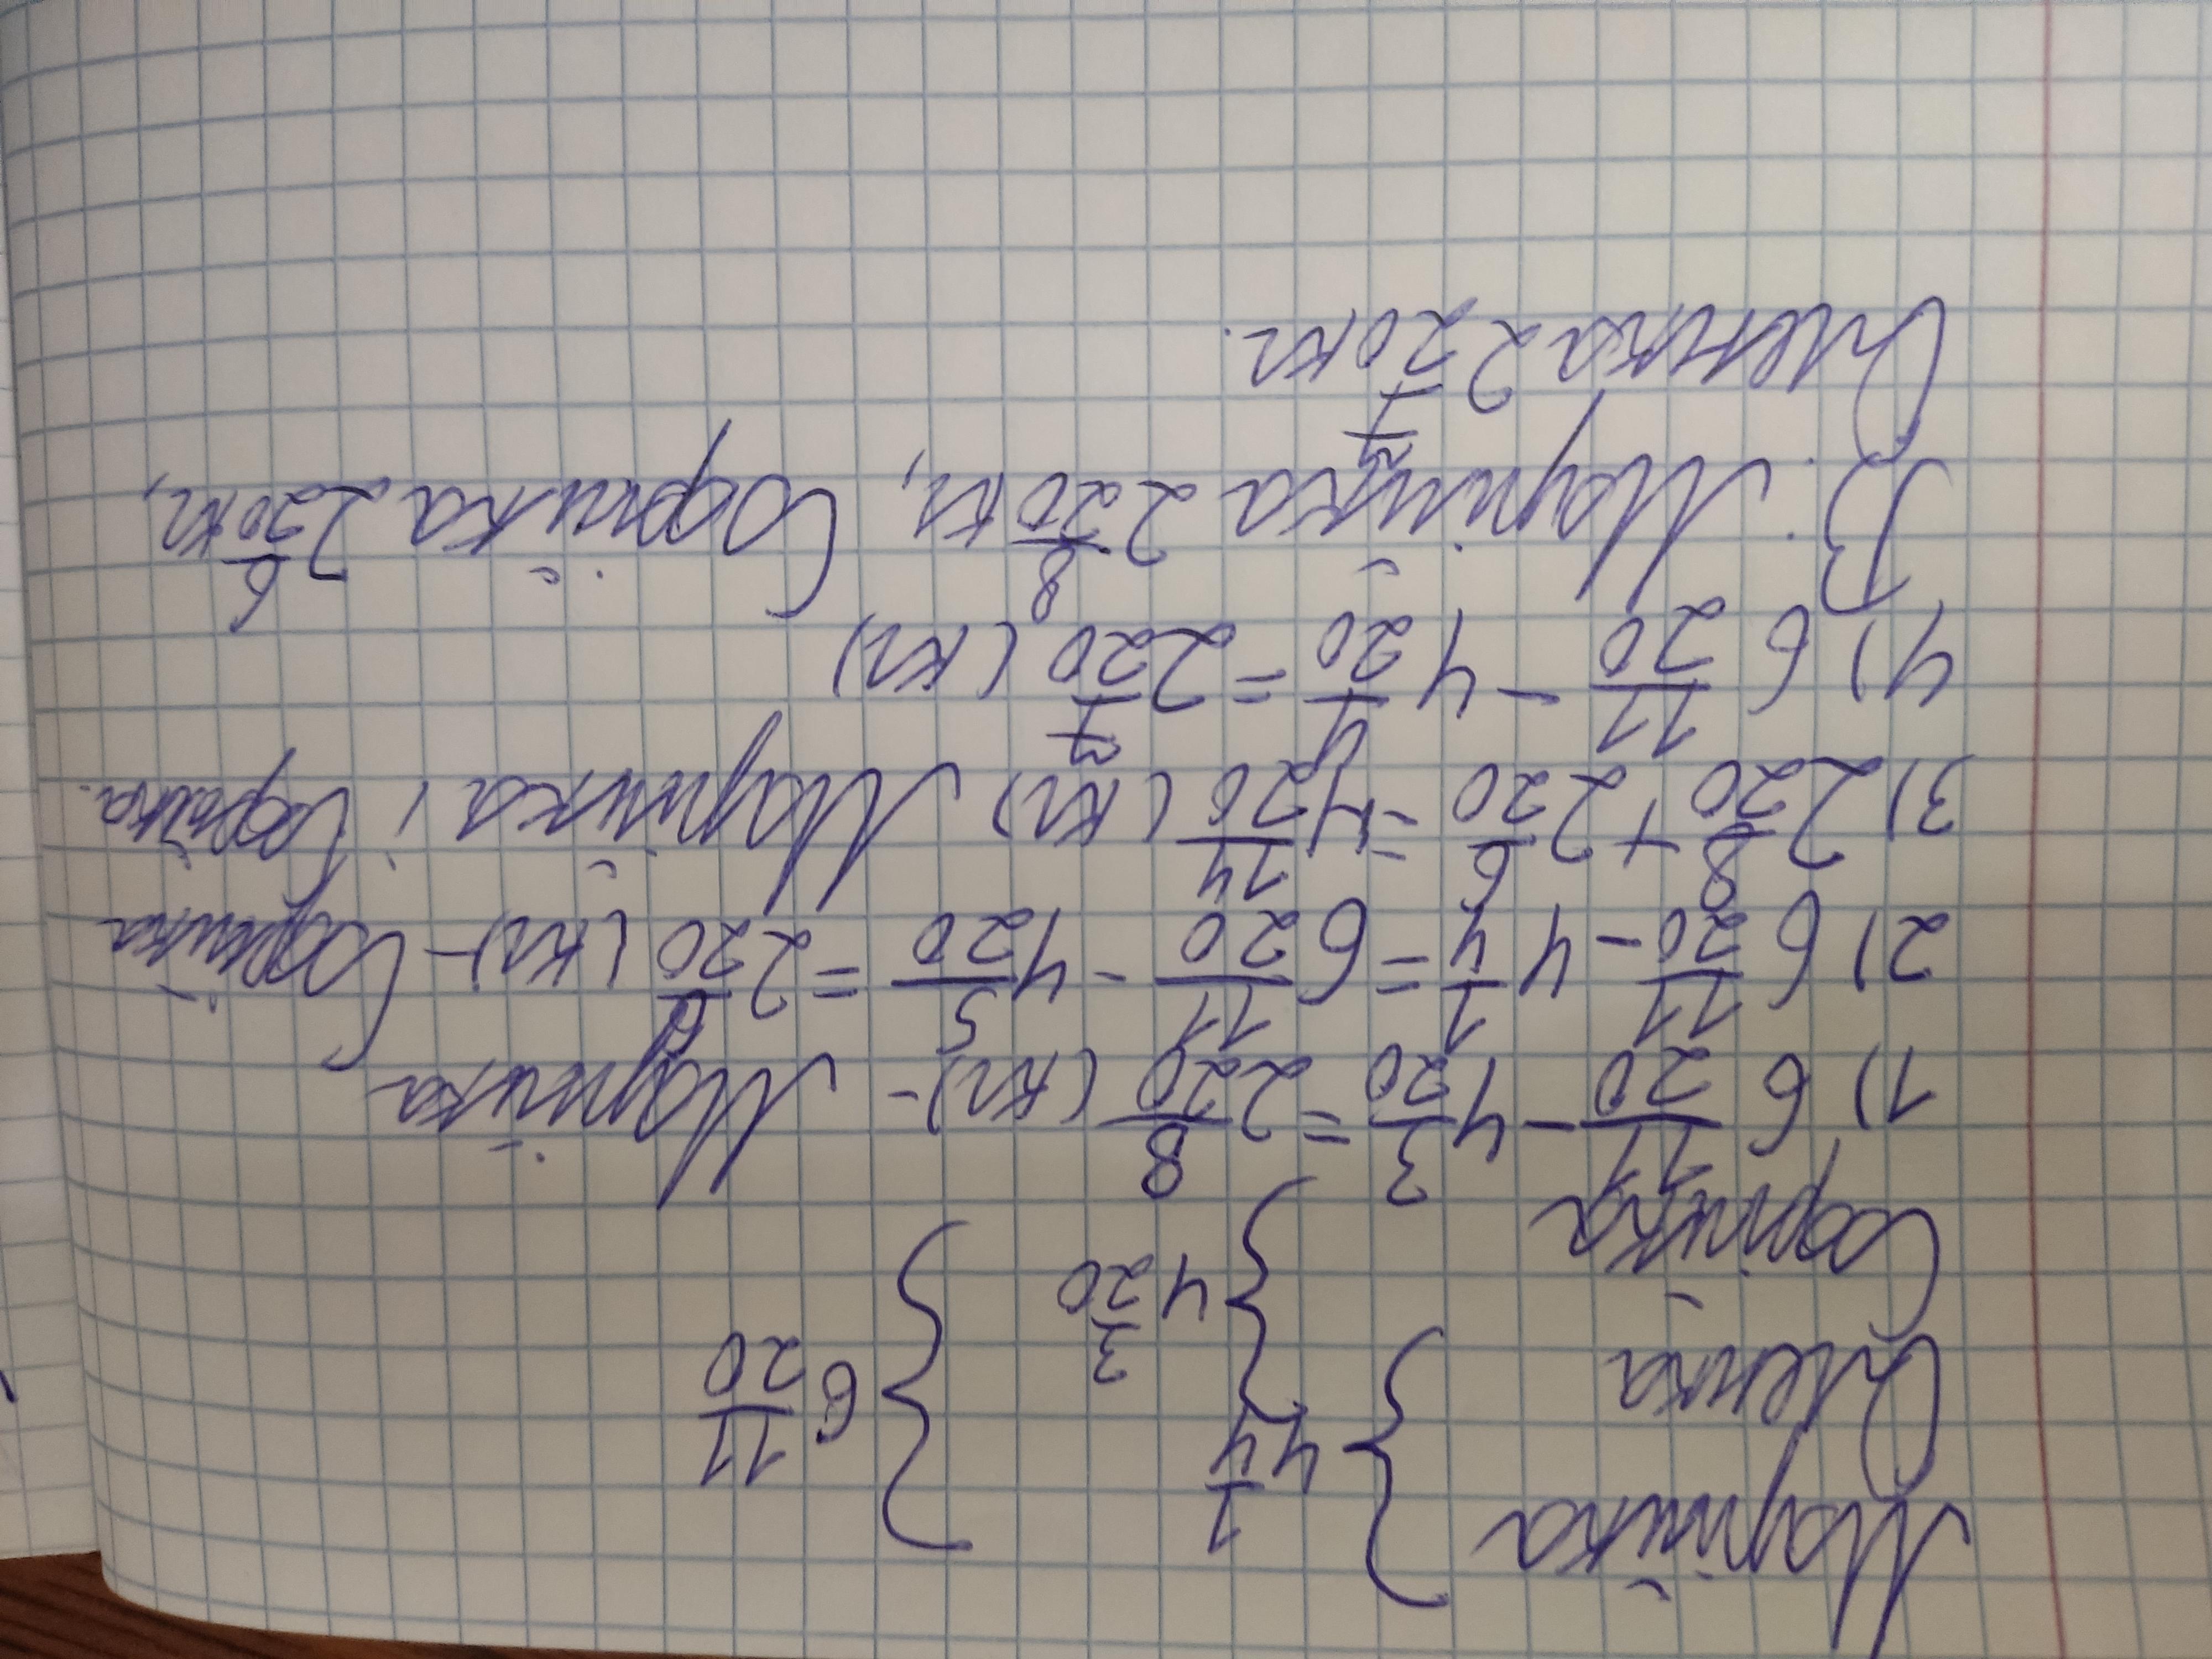 Марійка } 4 1/4
Оленка } 4 3/20 } 6 11/20
Софійка
1) 6 11/20 - 4 3/20 = 2 8/20 (кг) - Марійка
2) 6 11/20 - 4 1/4 = 6 11/20 - 4 5/20 = 2 6/20 (кг) - Софійка
3) 2 8/20 + 2 6/20 = 4 14/20 (кг) Марійка і Софійка.
4) 6 11/20 - 4 4/20 = 2 7/20 (кг)
В: Марійка 2 8/20 кг, Софійка 2 6/20 кг,
Оленка 2 7/20 кг.